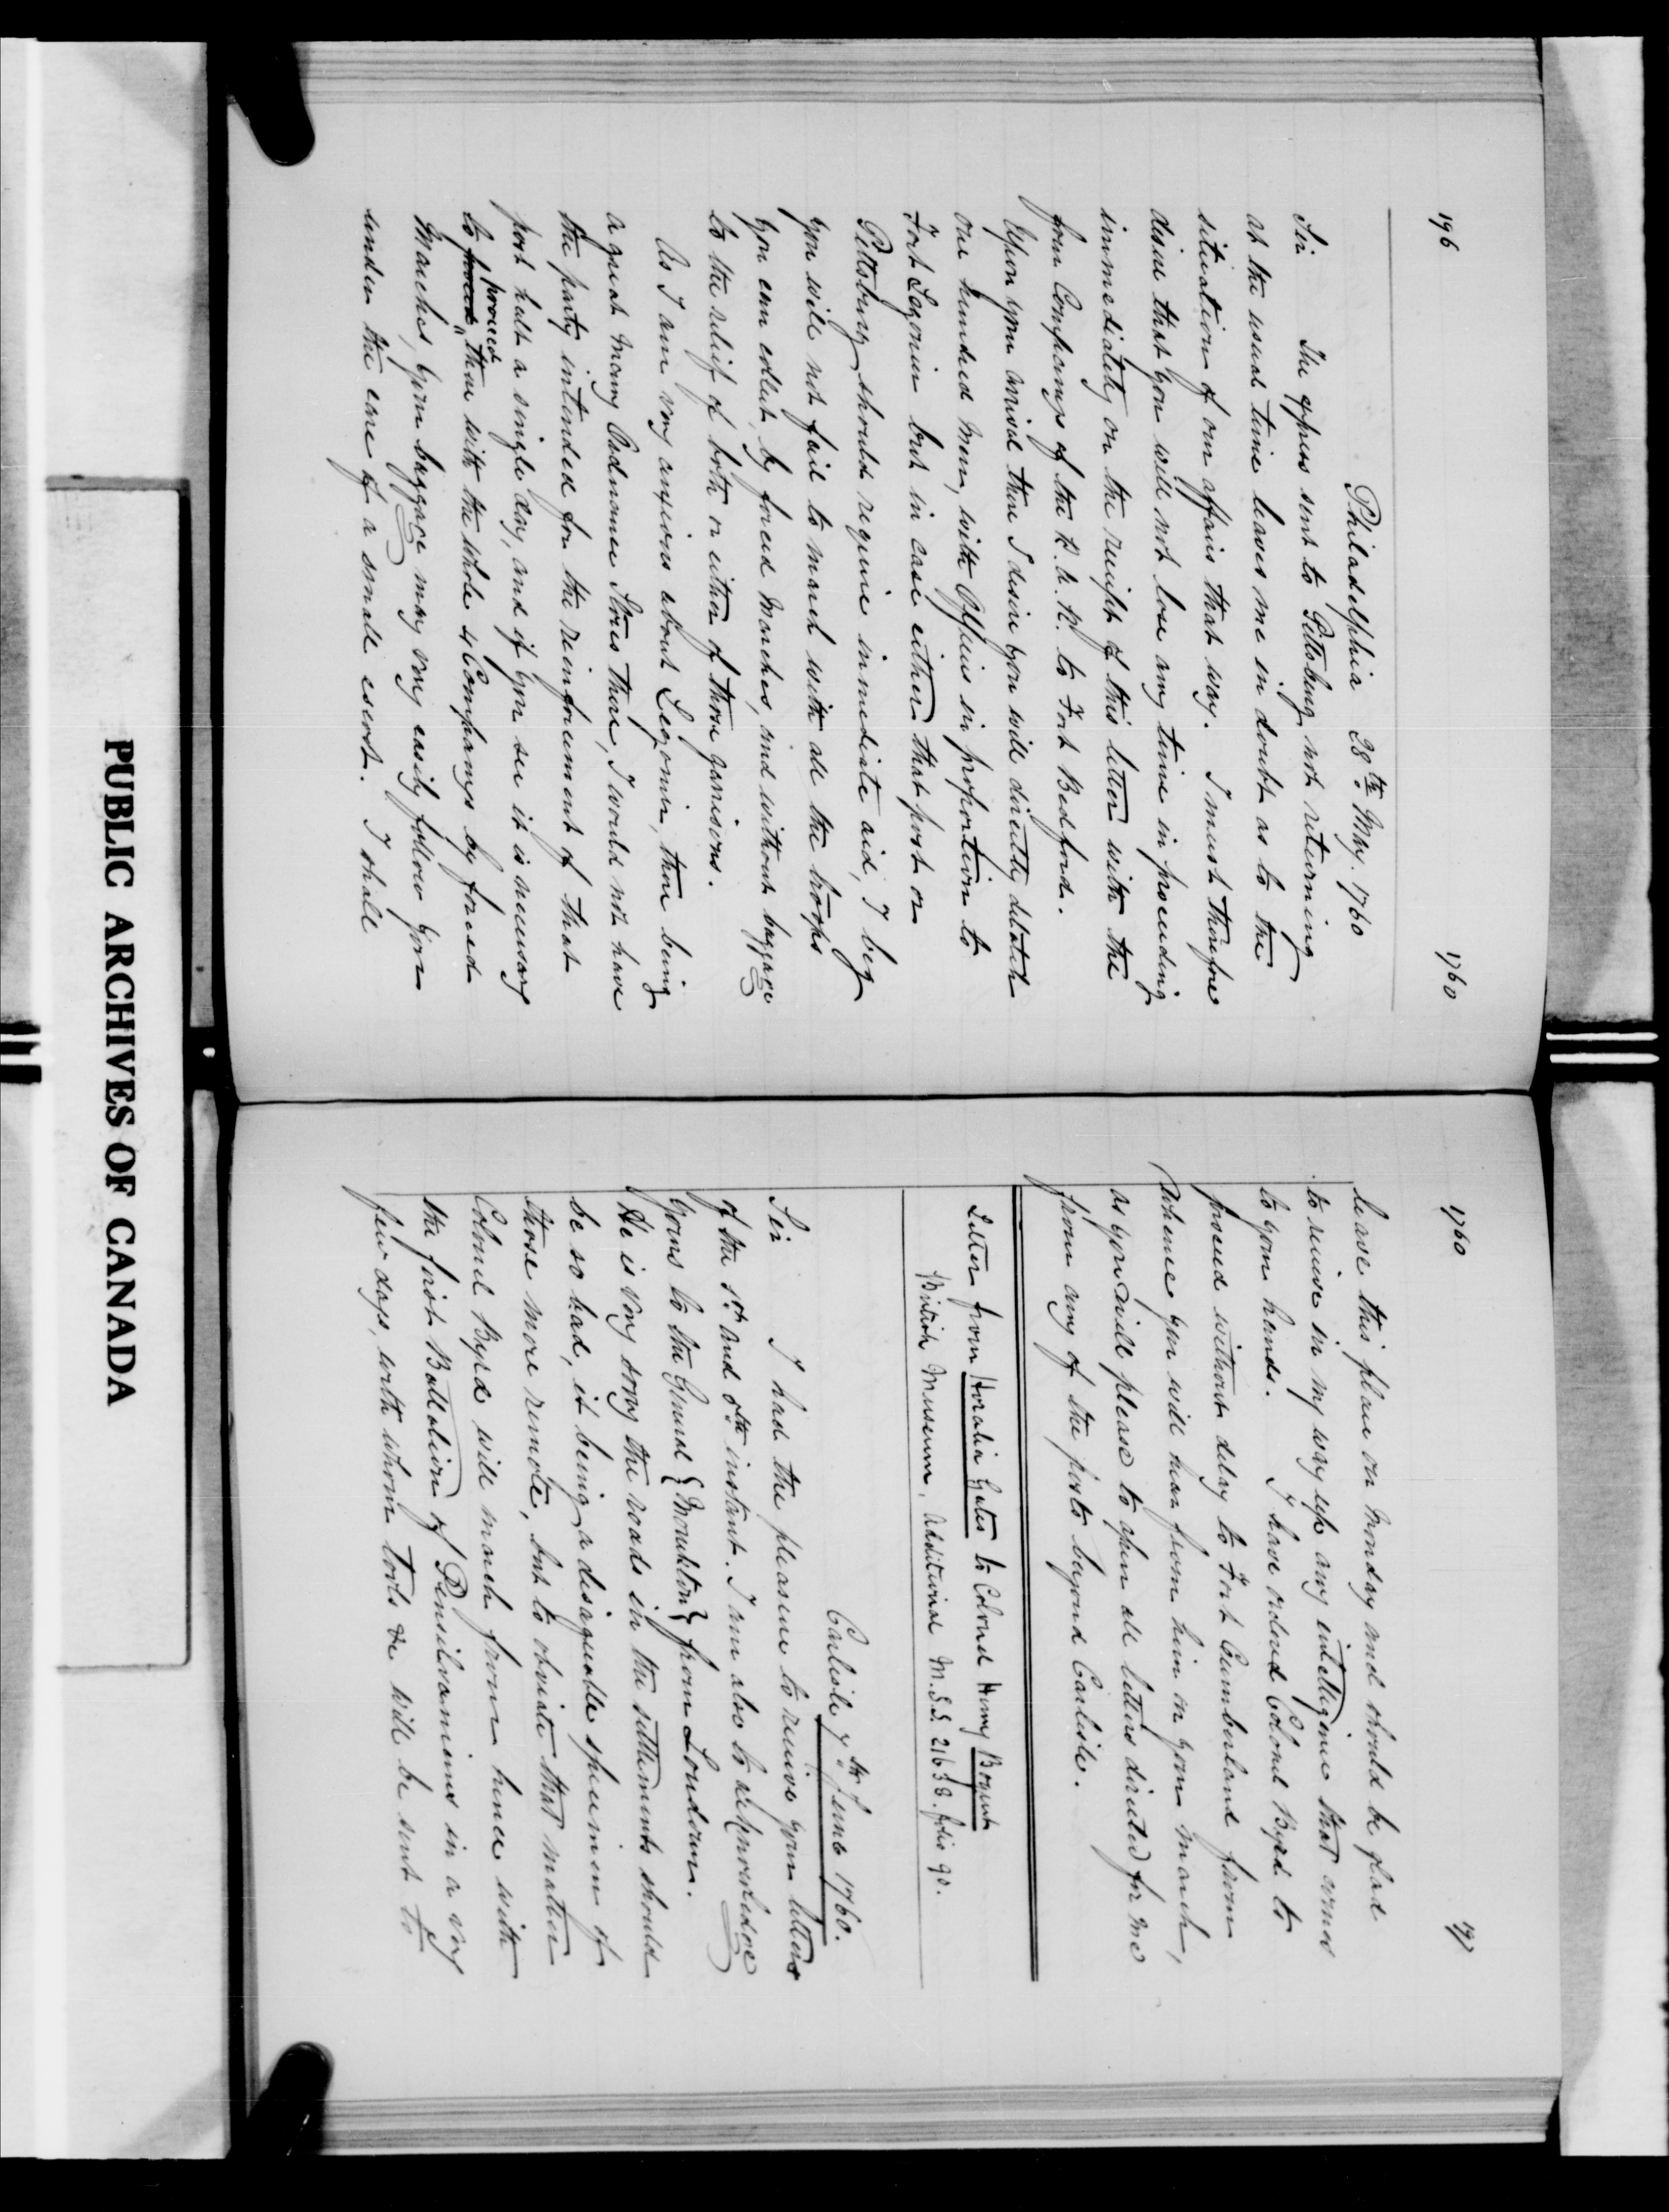 196 1760
Philadelphia 28th May. 1760
Sir The express sent to Pittsburg not returning
at the usual time leaves me in doubt as to the
situation of our affairs that way. I must therefore
desire that you will not lose any time in proceeding
immediately on the receipt of this letter with the
four Companys of the R. A. R. to Fort Bedford.
Upon your arrival there I desire you will directly detatch
one hundred men, with Officers in proportion to
Fort Legonier but in case either that post or
Pittsburg should require immediate aid, I beg
you will not fail to march with all the troops
you can collect, by forced marches, and without baggage
to the relief of both or either of those garrisons.
As I am very anxious about Legonier, there being
a great many Ordnance Stores there, I would not have
the party intended for the reinforcement of that
post halt a single day, and if you see it is necessary
proceed
to proceed " there with the whole 4 Companys by forced
Marches, your baggage may very easily follow you
under the care of a small escort. I shall
1760 197
leave this place on Monday and should be glad
to receive in my way up any intelligence that comes
to your hands. I have ordered Colonel Byrd to
proceed without delay to Fort Cumberland from
whence you will hear from him on your march,
as you will please to open all letters directed for me
from any of the posts beyond Carlisle.
Letter from Horatio Gates to Colonel Henry Bouquet
British Museum, Additional M.S.S. 21638. folio 90.
Carlisle 7th June 1760.
Sir I had the pleasure to receive your letters
of the 1st and 5th instant. I am also to acknowledge
yours to the General {Monckton} from Loudoun.
He is very sorry the roads in the settlements should
be so bad, it being a disagreable specimen of
those more remote, but to obviate that matter
Colonel Byrd will march from hence with
the first Battalion of Pensilvanians in a very
few days, with whom tools &c will be sent to
PUBLIC ARCHIVES OF CANADA